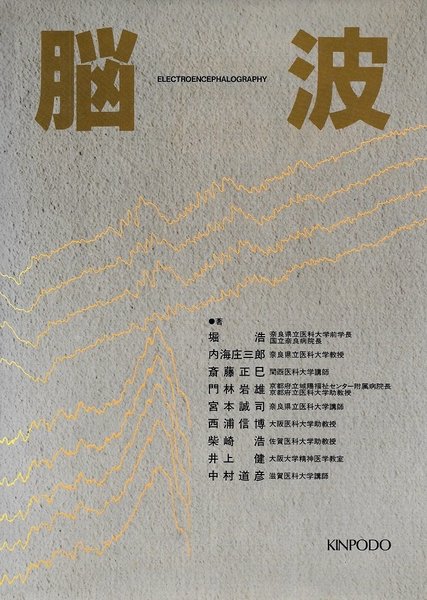 脳波
ELECTROENCEPHALOGRAPHY
●著
堀 浩 奈良県立医科大学前学長
国立奈良病院長
内海庄三郎 奈良県立医科大学教授
斎藤正巳 関西医科大学講師
門林岩雄 京都府立城陽福祉センター附属病院長
京都府立医科大学助教授
宮本誠司 奈良県立医科大学講師
西浦信博 大阪医科大学助教授
柴崎浩 佐賀医科大学助教授
井上健 大阪大学精神医学教室
中村道彦 滋賀医科大学講師
KINPODO